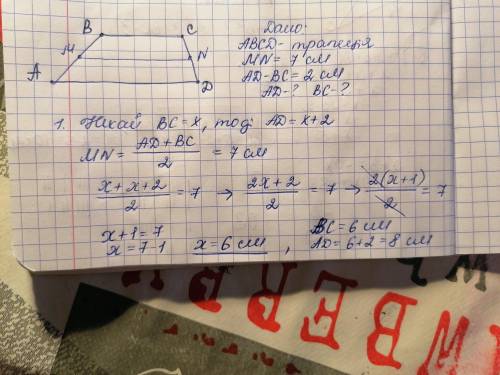 B C
M N
A D
Дано:
ABCD - трапеція
MN = 7 см
AD - BC = 2 см
AD - ? BC - ?
1. Нехай BC = x, тоді AD = x + 2
MN = (AD + BC)/2 = 7 см
(x + x + 2)/2 = 7 → (2x + 2)/2 = 7 → 2(x + 1)/2 = 7
x + 1 = 7
x = 7 - 1 x = 6 см, BC = 6 см
AD = 6 + 2 = 8 см